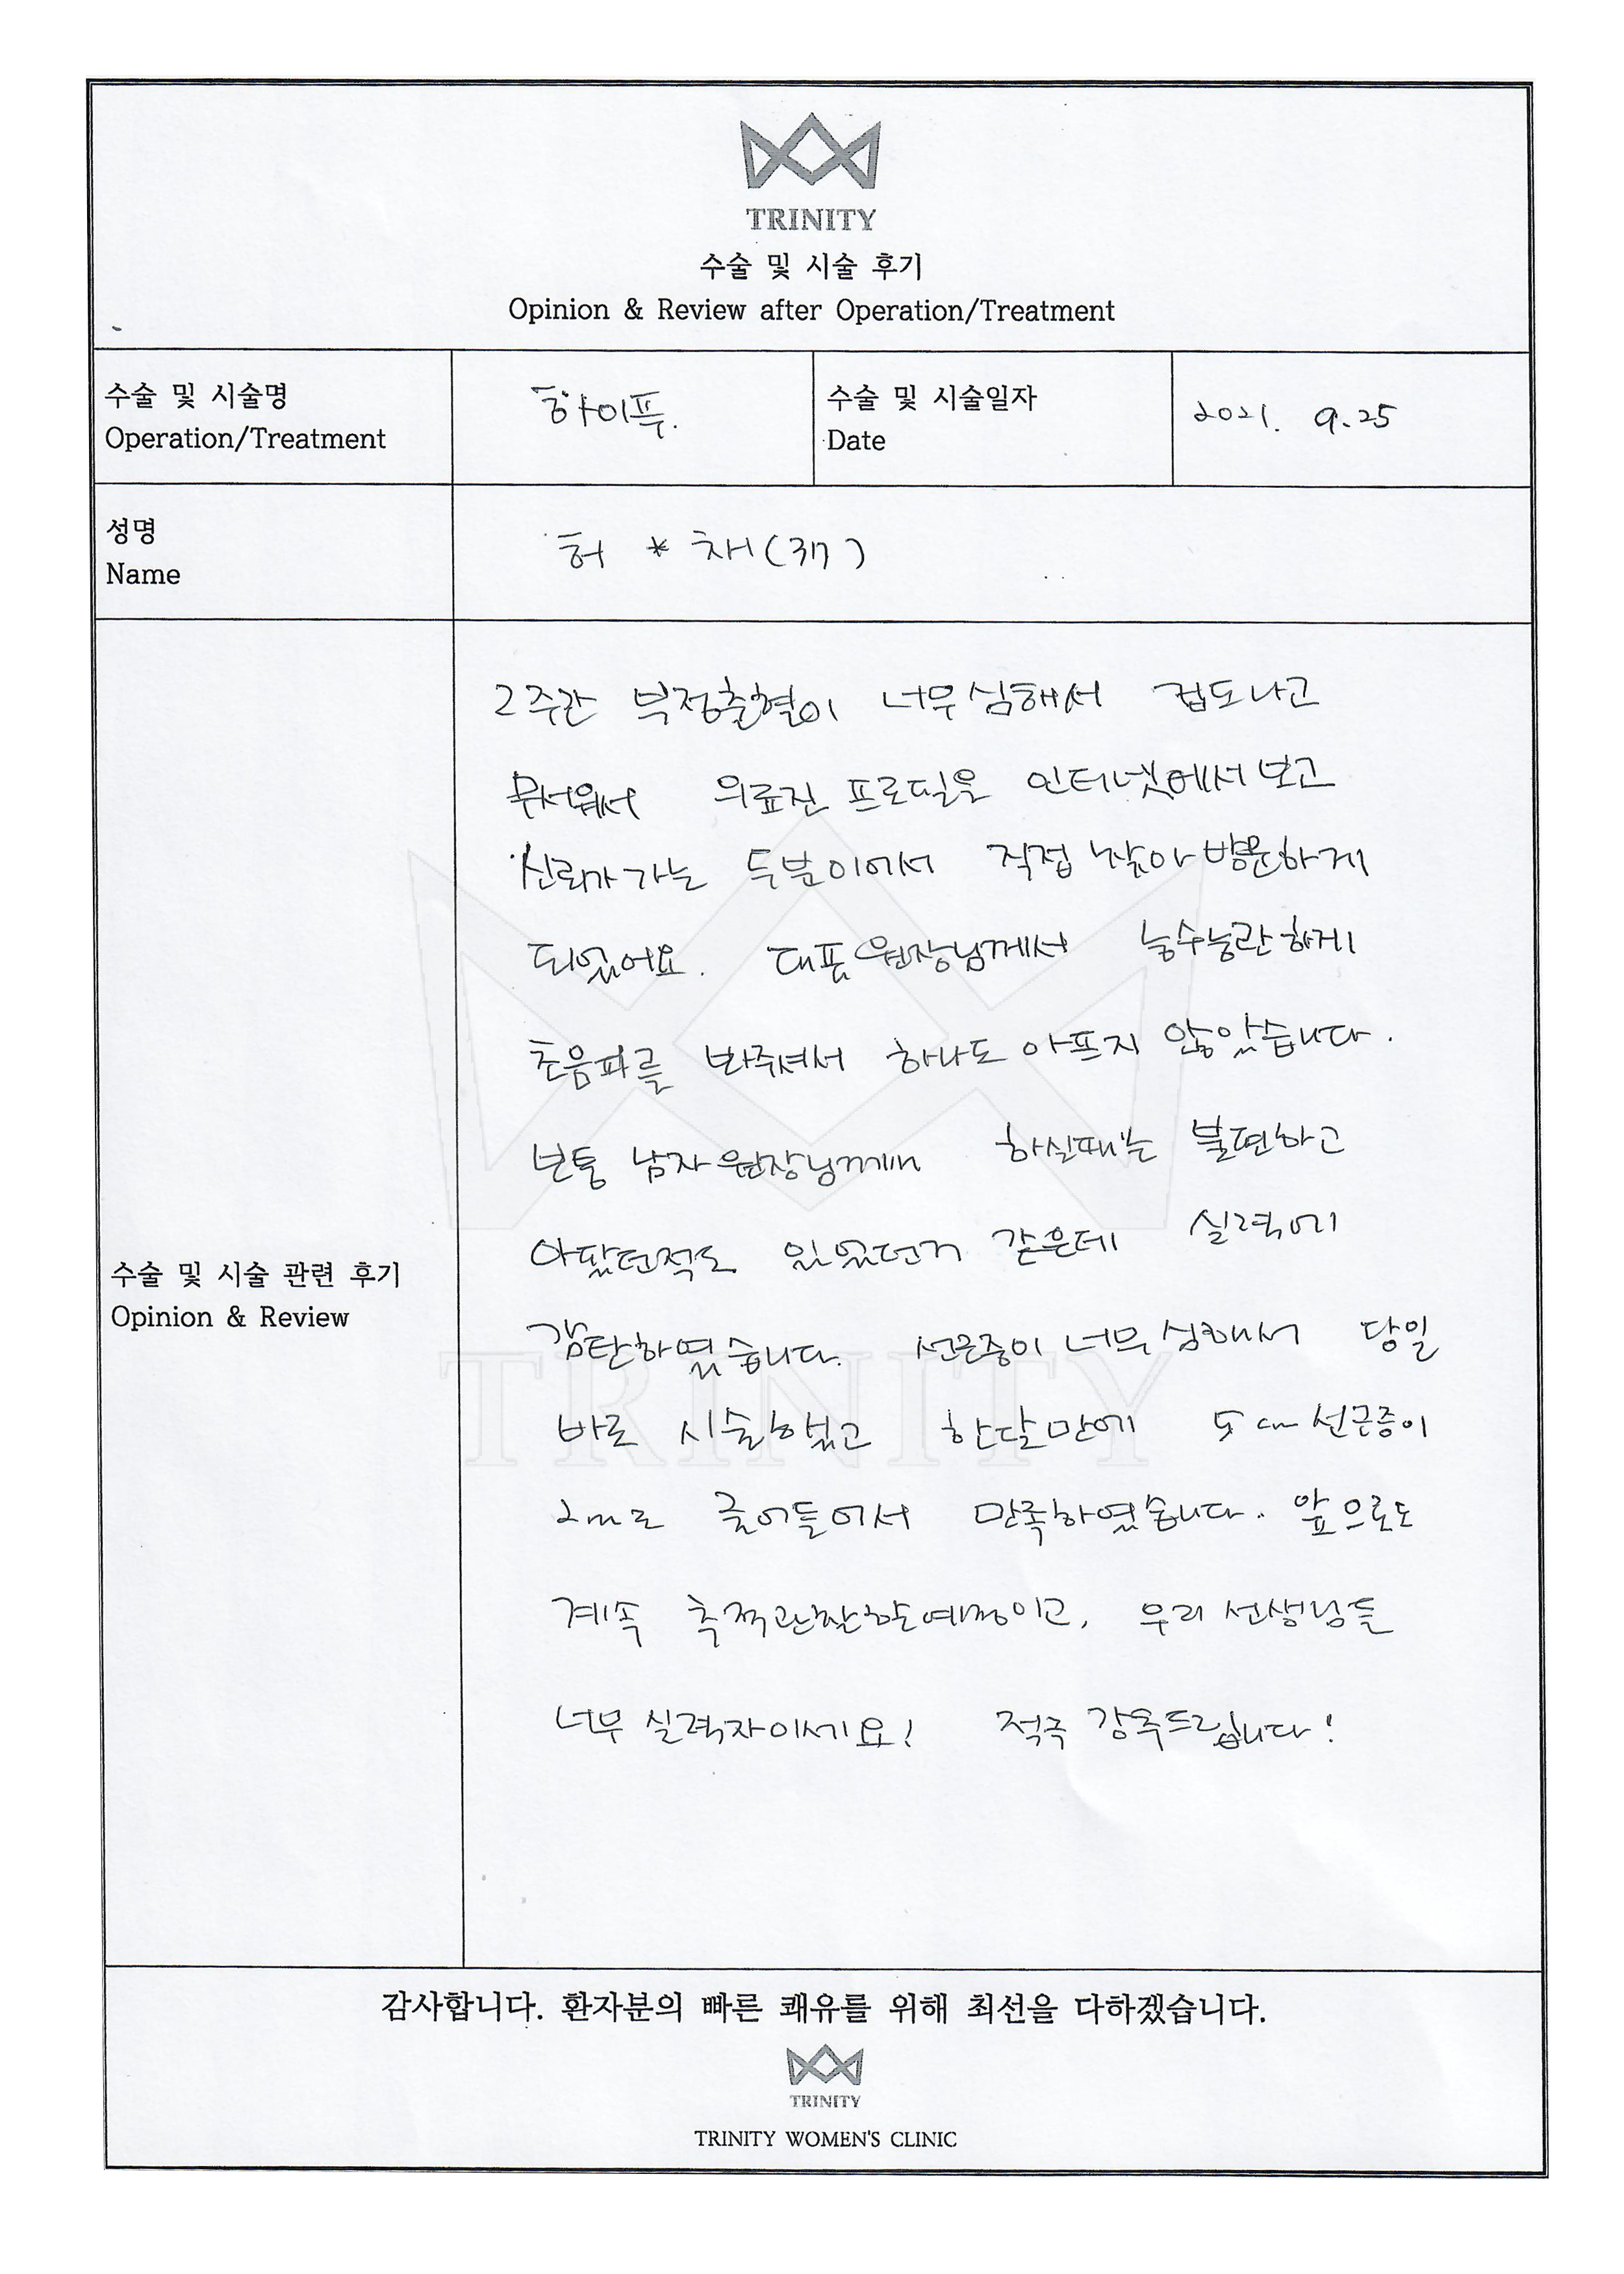 TRINITY
수술 및 시술 후기
Opinion & Review after Operation/Treatment
수술 및 시술명
Operation/Treatment
하이푸.
수술 및 시술일자
Date
2021. 9.25
성명
Name
허 * 채(37)
수술 및 시술 관련 후기
Opinion & Review
2주간 부정출혈이 너무심해서 겁도나고
무서워서 의료진 프로필을 인터넷에서보고
신뢰가 가는 두분이에서 직접 찾아 방문하게
되었어요. 대표원장님께서 능수능란하게
초음파를 봐주셔서 하나도 아프지 않았습니다.
보통 남자원장님께서 하실때는 불편하고
아팠던적도 있었던거 같은데 실력에
감탄하였습니다. 선근증이 너무심해서 당일
바로 시술했고 한달만에 5cm선근증이
2cm로 줄어들어서 만족하였습니다. 앞으로도
계속 추적관찰할예정이고, 우리 선생님들
너무 실력자이세요! 적극 강추드립니다!
TRINITY
감사합니다. 환자분의 빠른 쾌유를 위해 최선을 다하겠습니다.
TRINITY
TRINITY WOMEN'S CLINIC